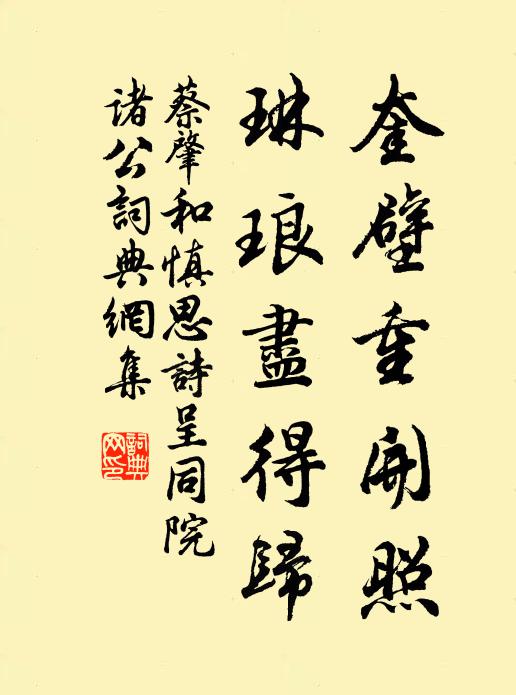 奎壁重開照
琳琅盡得歸
蔡肇和慎思詩呈同院
諸公詞典網集
詞典網印